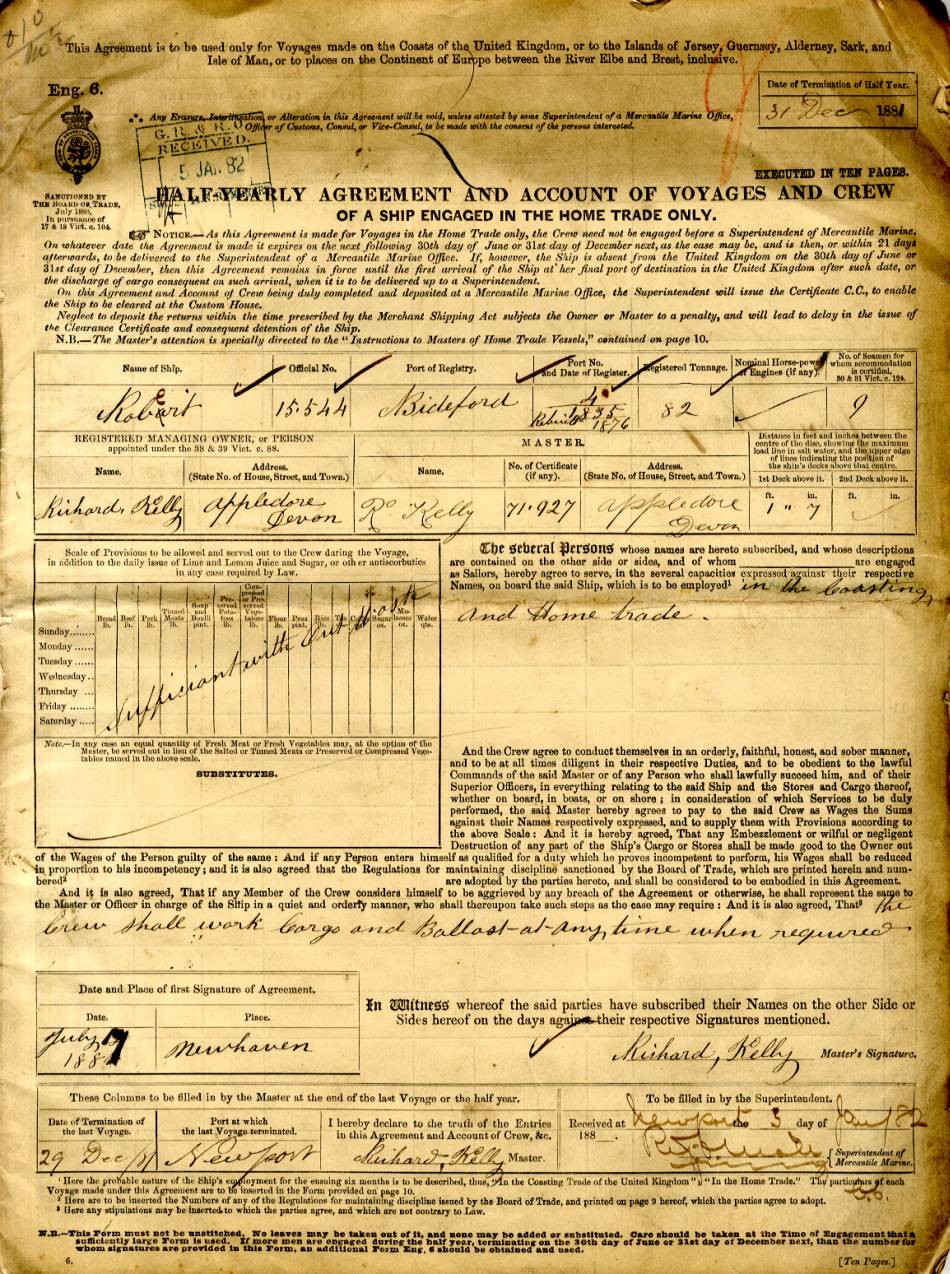 This Agreement is to be used only for Voyages made on the Coasts of the United Kingdom, or to the Islands of Jersey, Guernsey, Alderney, Sark, and
Isle of Man, or to places on the Continent of Europe between the River Elbe and Brest, inclusive.
Eng. 6.
Date of Termination of Half Year.
31 Dec 1881
Any Erasure, Interlineation, or Alteration in this Agreement will be void, unless attested by some Superintendent of a Mercantile Marine Office,
Officer of Customs, Consul, or Vice-Consul, to be made with the consent of the persons interested.
G. R. & R. O
RECEIVED.
5 JAN. 82
SANCTIONED BY
THE BOARD OF TRADE,
July 1880,
In pursuance of
17 & 18 Vict. c. 104.
EXECUTED IN TEN PAGES.
HALF-YEARLY AGREEMENT AND ACCOUNT OF VOYAGES AND CREW
OF A SHIP ENGAGED IN THE HOME TRADE ONLY.
NOTICE.—As this Agreement is made for Voyages in the Home Trade only, the Crew need not be engaged before a Superintendent of Mercantile Marine.
On whatever date the Agreement is made it expires on the next following 30th day of June or 31st day of December next, as the case may be, and is then, or within 21 days
afterwards, to be delivered to the Superintendent of a Mercantile Marine Office. If, however, the Ship is absent from the United Kingdom on the 30th day of June or
31st day of December, then this Agreement remains in force until the first arrival of the Ship at her final port of destination in the United Kingdom after such date, or
the discharge of cargo consequent on such arrival, when it is to be delivered up to a Superintendent.
On this Agreement and Account of Crew being duly completed and deposited at a Mercantile Marine Office, the Superintendent will issue the Certificate C.C., to enable
the Ship to be cleared at the Custom House.
Neglect to deposit the returns within the time prescribed by the Merchant Shipping Act subjects the Owner or Master to a penalty, and will lead to delay in the issue of
the Clearance Certificate and consequent detention of the Ship.
N.B.—The Master's attention is specially directed to the "Instructions to Masters of Home Trade Vessels," contained on page 10.
Name of Ship. Official No. Port of Registry. Port No. and Date of Register. Registered Tonnage. Nominal Horse-power of Engines (if any). No. of Seamen for whom accommodation is certified, 30 & 31 Vict. c. 124.
Robert 15.544 Bideford 4 1835 Rebuilt 1876 82 9
REGISTERED MANAGING OWNER, OR PERSON
appointed under the 38 & 39 Vict. c. 88.
MASTER.
Distance in feet and inches between the
centre of the disc, showing the maximum
load line in salt water, and the upper edge
of lines indicating the position of
the ship's decks above that centre.
Name. Address. (State No. of House, Street, and Town.) Name. No. of Certificate (if any). Address. (State No. of House, Street, and Town.) 1st Deck above it. 2nd Deck above it.
ft. in. ft. in.
Richard, Kelly Appledore Devon Rd Kelly 71.927 Appledore Devon 1 " 7
Scale of Provisions to be allowed and served out to the Crew during the Voyage,
in addition to the daily issue of Lime and Lemon Juice and Sugar, or other antiscorbutics
in any case required by Law.
Bread lb. Beef lb. Pork lb. Tinned Meats lb. Soup and Bouilli pint. Preserved Potatoes lb. Compressed or Preserved Vegetables lb. Flour lb. Peas pint. Rice lb. Sugar oz. Molasses oz. Water qts.
Sunday
Monday
Tuesday
Wednesday
Thursday
Friday
Saturday
Sufficiant with Out Waste
Note.—In any case an equal quantity of Fresh Meat or Fresh Vegetables may, at the option of the
Master, be served out in lieu of the Salted or Tinned Meats or Preserved or Compressed Vege-
tables named in the above scale.
SUBSTITUTES.
The several Persons whose names are hereto subscribed, and whose descriptions
are contained on the other side or sides, and of whom are engaged
as Sailors, hereby agree to serve, in the several capacities expressed against their respective
Names, on board the said Ship, which is to be employed¹ in the Coasting
and Home trade.
And the Crew agree to conduct themselves in an orderly, faithful, honest, and sober manner,
and to be at all times diligent in their respective Duties, and to be obedient to the lawful
Commands of the said Master or of any Person who shall lawfully succeed him, and of their
Superior Officers, in everything relating to the said Ship and the Stores and Cargo thereof,
whether on board, in boats, or on shore; in consideration of which Services to be duly
performed, the said Master hereby agrees to pay to the said Crew as Wages the Sums
against their Names respectively expressed, and to supply them with Provisions according to
the above Scale: And it is hereby agreed, That any Embezzlement or wilful or negligent
Destruction of any part of the Ship's Cargo or Stores shall be made good to the Owner out
of the Wages of the Person guilty of the same: And if any Person enters himself as qualified for a duty which he proves incompetent to perform, his Wages shall be reduced
in proportion to his incompetency; and it is also agreed that the Regulations for maintaining discipline sanctioned by the Board of Trade, which are printed herein and num-
bered² are adopted by the parties hereto, and shall be considered to be embodied in this Agreement.
And it is also agreed, That if any Member of the Crew considers himself to be aggrieved by any breach of the Agreement or otherwise, he shall represent the same to
the Master or Officer in charge of the Ship in a quiet and orderly manner, who shall thereupon take such steps as the case may require: And it is also agreed, That³ the
Crew shall work Cargo and Ballast at any time when required
Date and Place of first Signature of Agreement.
Date. Place.
July 1881 Newhaven
In Witness whereof the said parties have subscribed their Names on the other Side or
Sides hereof on the days against their respective Signatures mentioned.
Richard, Kelly Master's Signature.
These Columns to be filled in by the Master at the end of the last Voyage or the half year.
Date of Termination of the last Voyage. Port at which the last Voyage terminated. I hereby declare to the truth of the Entries in this Agreement and Account of Crew, &c.
29 Dec /81 Newport Richard, Kelly Master.
To be filled in by the Superintendent.
Received at Newport the 3 day of Jany 82
188
Superintendent of Mercantile Marine.
¹ Here the probable nature of the Ship's employment for the ensuing six months is to be described, thus, "In the Coasting Trade of the United Kingdom"; "In the Home Trade." The particulars of each
Voyage made under this Agreement are to be inserted in the Form provided on page 10.
² Here are to be inserted the Numbers of any of the Regulations for maintaining discipline issued by the Board of Trade, and printed on page 9 hereof, which the parties agree to adopt.
³ Here any stipulations may be inserted to which the parties agree, and which are not contrary to Law.
N.B.—This Form must not be unstitched. No leaves may be taken out of it, and none may be added or substituted. Care should be taken at the Time of Engagement that a
sufficiently large Form is used. If more men are engaged during the half year, terminating on the 30th day of June or 31st day of December next, than the number for
whom signatures are provided in this Form, an additional Form Eng. 6 should be obtained and used.
6.
[Ten Pages.]